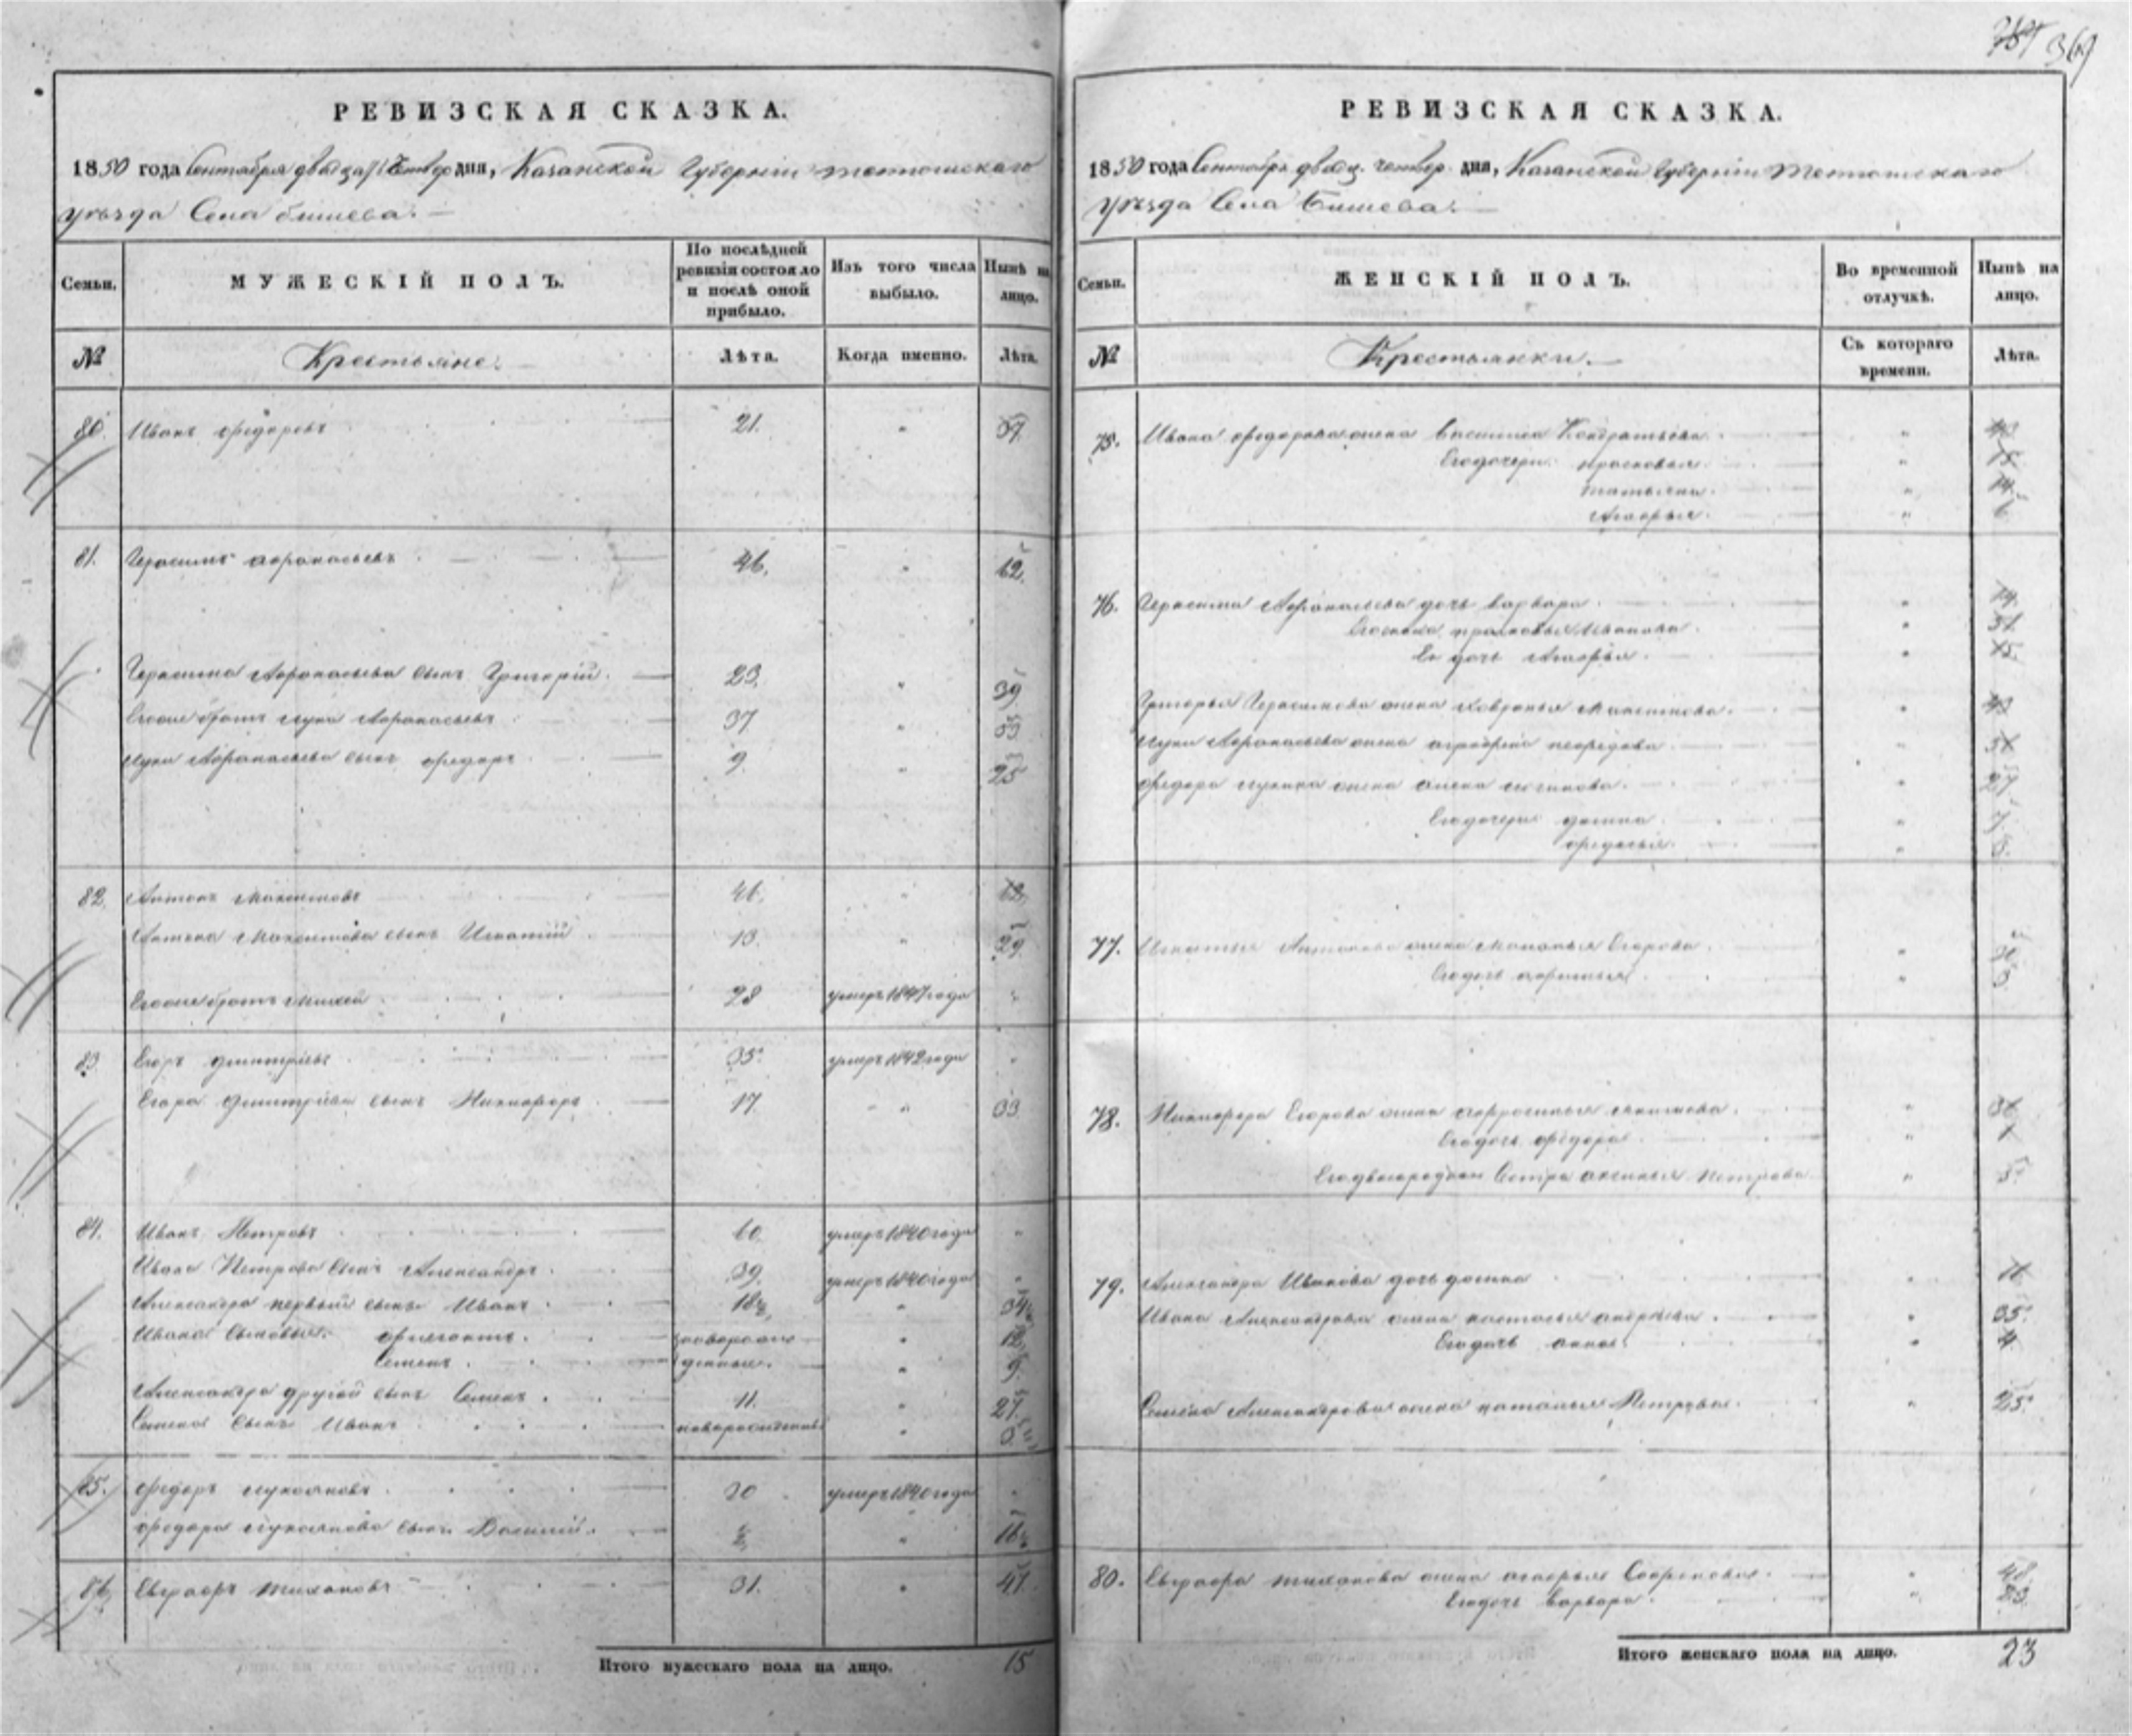 369
РЕВИЗСКАЯ СКАЗКА.
1850 года Сентября двадцать четвер дня, Казанской Губернии Тетюшскаго
уѣзда Села Бишева.
Семьи. МУЖЕСКІЙ ПОЛЪ. По послѣдней ревизіи состояло и послѣ оной прибыло. Изъ того числа выбыло. Нынѣ на лицо.
№ Крестьяне. Лѣта. Когда именно. Лѣта.
80. Иванъ Федоровъ 21. " 37.
81. Герасимъ Афонасьевъ 46. " 62.
Герасима Афонасьева сынъ Григорій. 23. " 39.
Егоже братъ Лука Афонасьевъ 37 " 53
Луки Афонасьева сынъ Федоръ 9. " 25
82. Антонъ Максимовъ 46. " 62.
Антона Максимова сынъ Игнатий 13. " 29.
Егоже братъ Михей 28 умеръ 1847 года "
83. Егоръ Дмитріевъ 35. умеръ 1842 года "
Егора Дмитріева сынъ Никифоръ 17 " 33.
84. Иванъ Петровъ 60. умеръ 1840 года "
Ивана Петрова сынъ Александръ 39. умеръ 1840 года "
Александра первый сынъ Иванъ 18½ " 34½
Ивана сыновья Филатъ новорож " 12.
Семенъ денные. " 9.
Александра другой сынъ Семенъ 11. " 27.
Семена сынъ Иванъ новорожденный "
85. Федоръ Лукояновъ 30 умеръ 1840 года "
Федора Лукоянова сынъ Василий. ½ " 16½
86. Евграфъ Тихановъ 31. " 47.
Итого мужескаго пола на лицо. 15
РЕВИЗСКАЯ СКАЗКА.
1850 года Сентября двадц. четвер. дня, Казанской Губерніи Тетюшскаго
уѣзда Села Бишева.
Семьи. ЖЕНСКІЙ ПОЛЪ. Во временной отлучкѣ. Нынѣ на лицо.
№ Крестьянки. Съ котораго времени. Лѣта.
75. Ивана Федорова жена Василиса Кондратьева "
Егодочери Прасковья "
Татьяна " 14.
" 6
76. Герасима Афонасьева дочь Варвара " 14.
Егожена Прасковья Иванова " 51.
Ея дочь " 15.
Григорья Герасимова жена Хавронья Максимова. " 43
Луки Афонасьева жена "
Федора Лукина жена " 27
Егодочери Домна " 7.
Федосья "
77. Игнатья Антонова жена Маланья Егорова " 30
Егодочь " 3
78. Никифора Егорова жена " 36
Егодочь Федора " 1
Егодвоюродная Сестра Аксинья Петрова "
79. Александра Иванова дочь Домна " 11.
Ивана Александрова жена Настасья Андреева " 35.
Егодочь Анна " 4
Семена Александрова жена Наталья Петрова " 25.
80. Евграфа Тиханова жена Агафья Софронова " 48.
Егодочь Варвара " 23.
Итого женскаго пола на лицо. 23